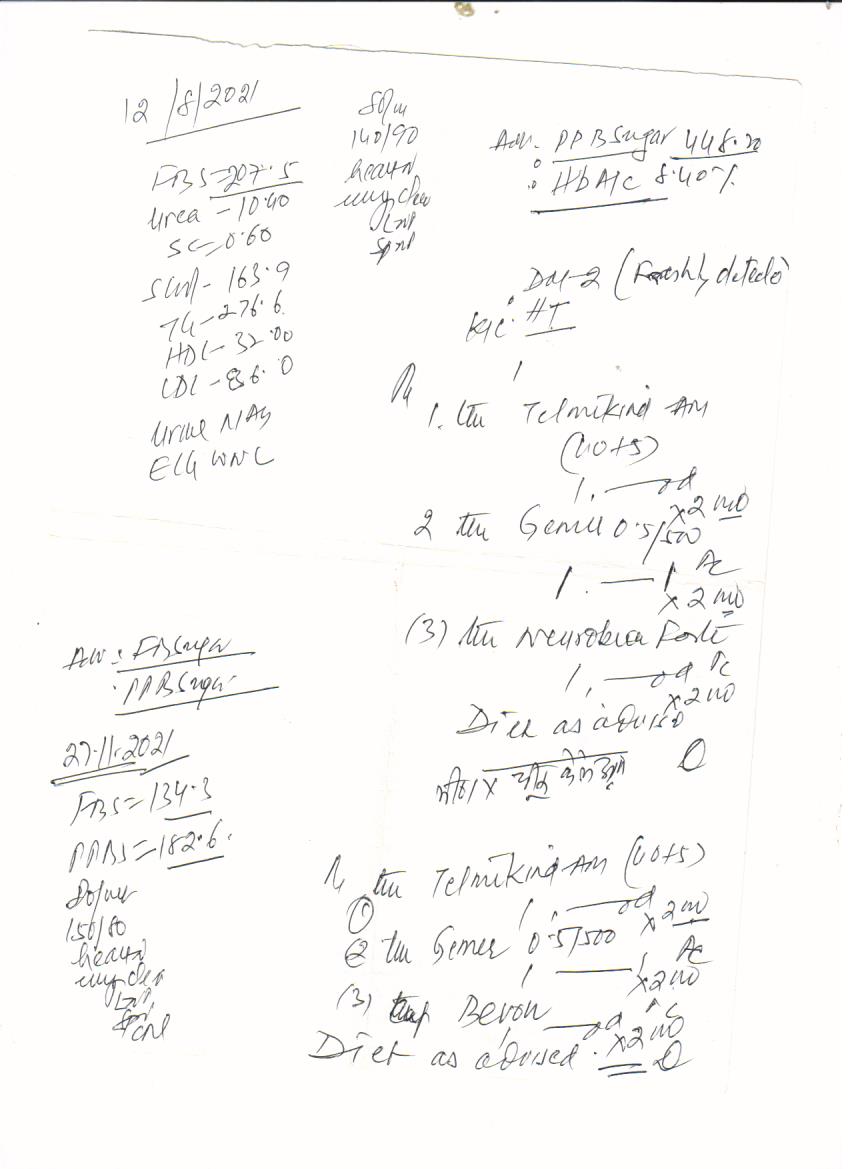 12/8/2021
FBS=207.5
Urea - 10.40
SC=0.60
163.9
TG-276.6
HDL-32.00
LDL-86.0
Urine NAS
ECG WNL
80/m
140/90
heart N
lung clear
LNP
SpNP
Adv. PPBSugar 448.20
HbA1c 8.40%
DM-2 (Freshly detected)
HT
1. Telmikind AM
(40+5)
1. od
x2mo
2 0.5/500
1. 1 AC
x2mo
(3) Neurobion Forte
1. od PC
x2mo
Diet as advised
Adv: FBSugar
PPBSugar
27.11.2021
FBS=134.3
PPBS=182.6
80/m
150/80
heart N
lung clear
LNP
Telmikind AM (40+5)
① 1. od x2mo
② Gemer 0.5/500
1 1 AC
x2mo
(3) Cap Bevon
1 od PC
Diet as advised. x2mo